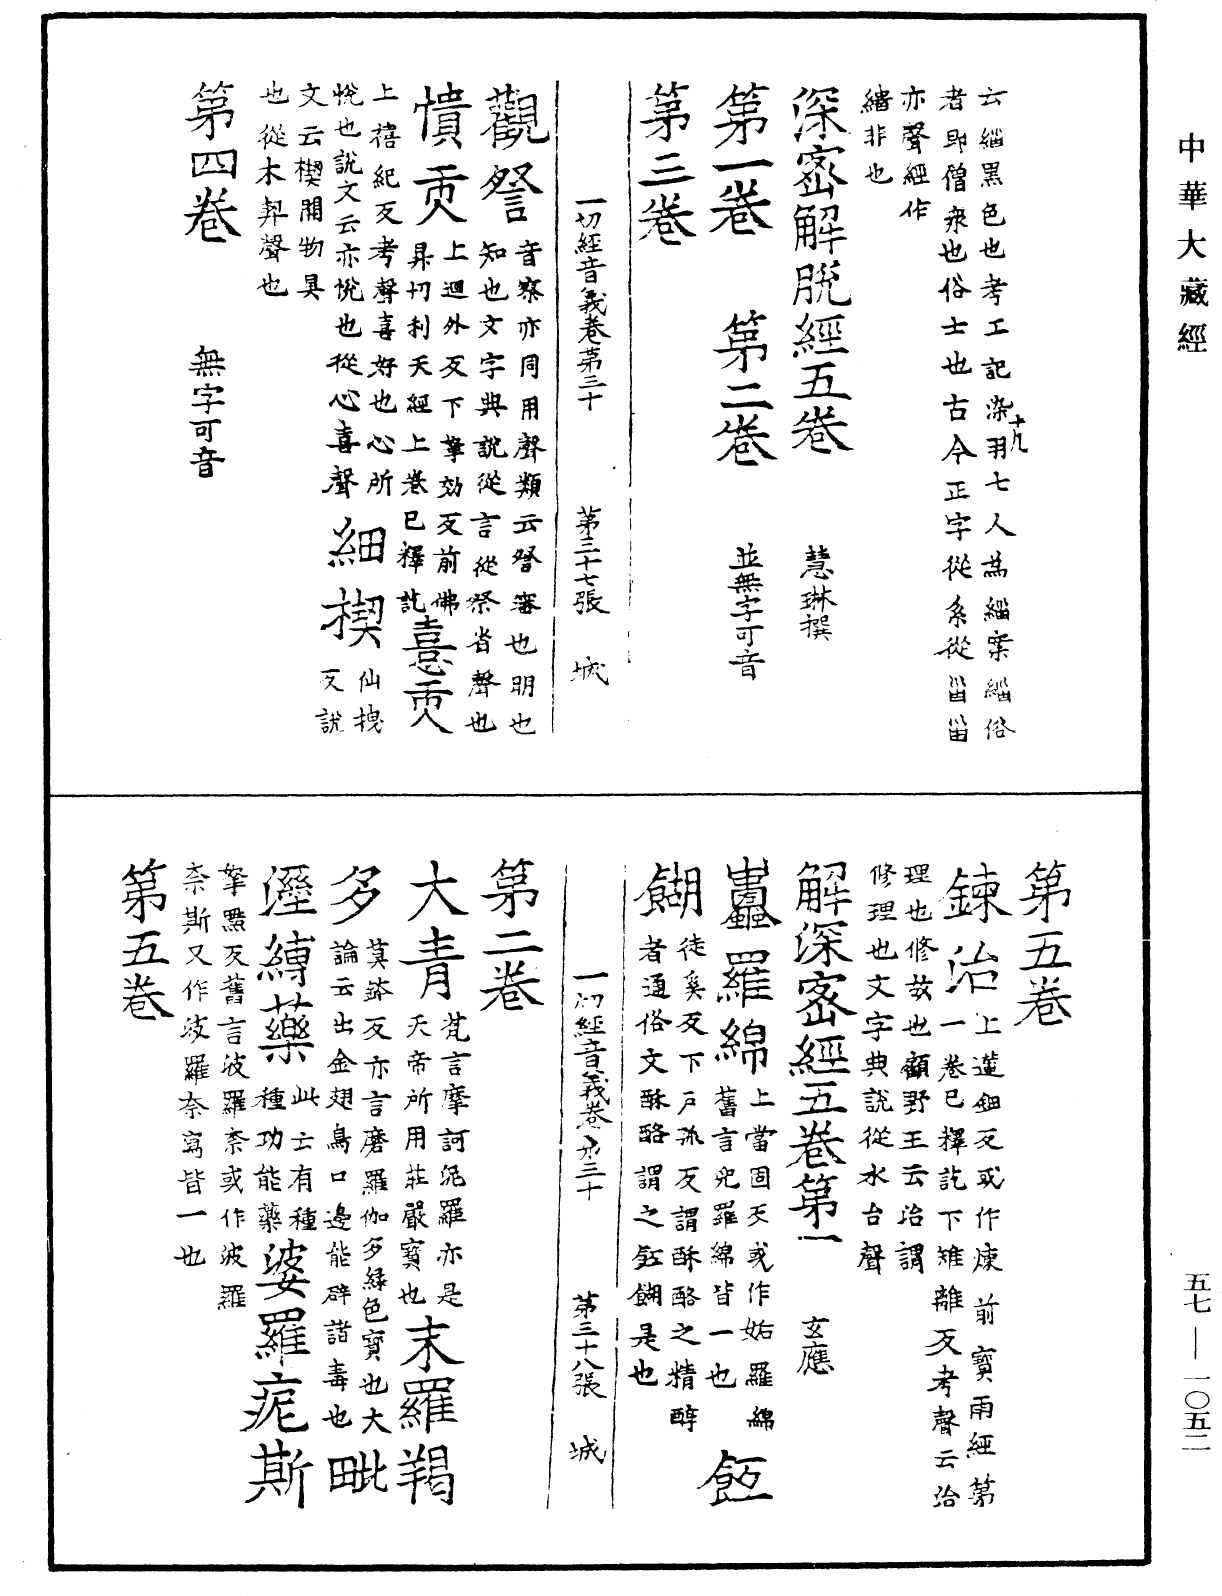 中華大藏經
云緇黑色也考工記染羽七人為緇案緇俗
十九
者即僧衆也俗士也古今正字從糸從甾甾
亦聲經作
繬非也
深密解脫經五卷 慧琳撰
第一卷 第二卷 並無字可音
第三卷
一切經音義卷第三十 第三十七張 城
觀詧 音察亦同用聲類云詧審也明也
知也文字典說從言從祭省聲也
憒丙 上迴外反下拏効反前佛
昇忉利天經上卷已釋訖 憙貢
上禧紀反考聲喜好也心所
悅也說文云亦悅也從心喜聲 細楔 仙拽
反說
文云楔開物具
也從木契聲也
第四卷 無字可音
第五卷
鍊治 上蓮鈿反或作煉前寶雨經第
一卷已釋訖下雉離反考聲云治
理也修故也顧野王云治謂
修理也文字典說從水台聲
解深密經五卷第一 玄應
蠹羅綿 上當固反或作妬羅綿
舊言兜羅綿皆一也 䬫
餬 徒奚反下戶孤反謂酥酪之精醇
者通俗文酥酪謂之䬫餬是也
一切經音義卷第三十 第三十八張 城
第二卷
大青 梵言摩訶泥羅亦是
天帝所用莊嚴寶也 末羅羯
多 莫鉢反亦言磨羅伽多綠色寶也大
論云出金翅鳥口邊能辟諸毒也 毗
溼縛藥 此土有種
種功能藥 婆羅痆斯
拏黠反舊言波羅柰或作波羅
柰斯又作波羅奈寫皆一也
第五卷
五七—一〇五二